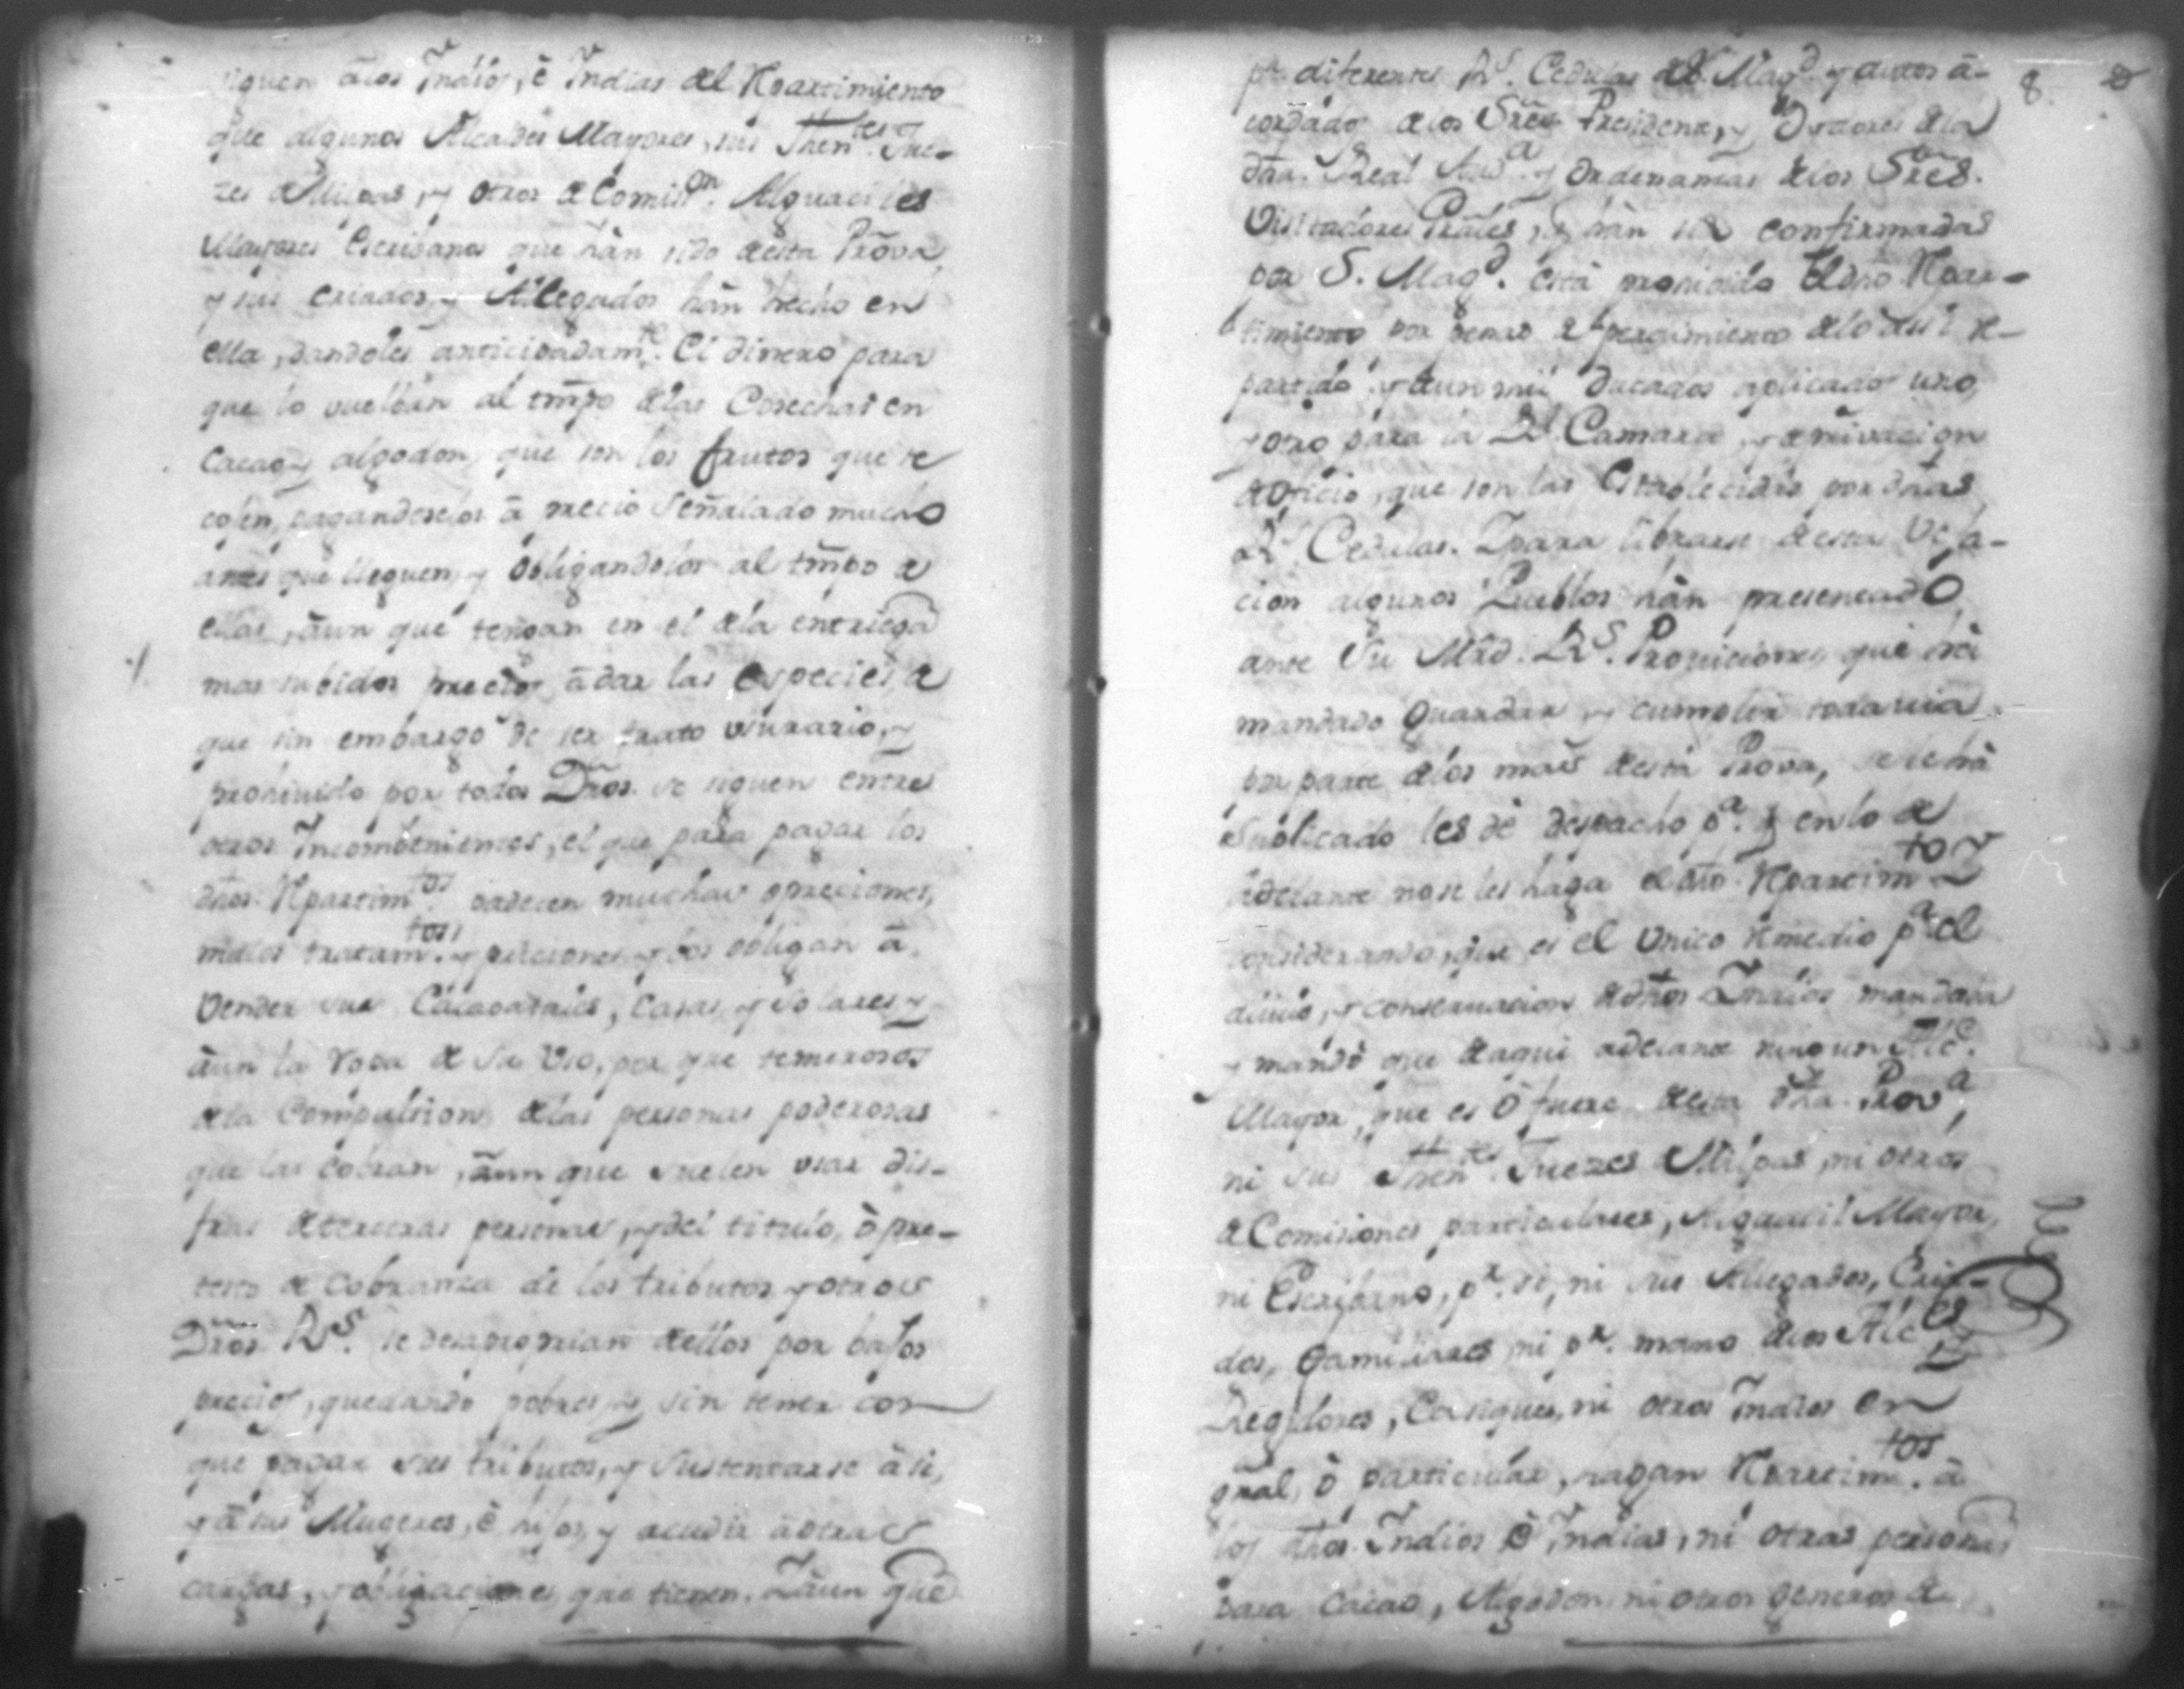 siguen âlos Indios, è Indias del Rpartimiento
que algunos Alcaldes Mayores, sus Then.tes Jue-
zes de Milpas, y otros de Comiss.on Alguaciles
Mayores Escrivanos que hàn sido desta Prov.a
y sus criados, y Allegados hàn hecho en
ella, dandoles anticipadam.te El dinero para
que lo vuelban al tmpo delas Cosechas en
Cacao, y algodon, que son los frutos que se
cojen, pagandoselos â precio señalado mucho
antes que lleguen, y obligandolos al tmpo de
ellas, âun que tengan en el dela entriega
mas subidos precios, âdar las especies, de
que sin embargo de ser trato usurario, y
prohiuido por todos Dros. se siguen entre
otros Incombenientes, el que para pagar los
dhos. Rpartim.tos padecen muchas opreciones,
malos tratam.tos y priciones, y los obligan â
vender sus Cacaoatales, Casas, y Solares, y
âun la ropa de su Uso, por que temerosos
dela Compulsion delas personas poderosas
que las cobran, âun que suelen usar dis-
fras deterceras personas, y del titulo, ò pre-
testo de Cobranza de los tributos, y otros
Dros. R.s se desapropian dellos por bajos
precios, quedando pobres, y sin tener con
que pagar sus tributos, y sustentarse âsi,
y â sus Mugeres, è hijos, y acudir âotras
cargas, y obligaciones que tienen. Iâun que
8
por diferentes R.s Cedulas de S. Mag.d y autos â-
cordados delos Sres. Presidente, y Oydores dela
dha. Real Aud.a y Ordenansas delos Sres.
Visitadores Grales, q hàn sido confirmadas
por S. Mag.d està prohiuido el dho Rpar-
timiento por penas de perdimiento delo asi re-
partido, y de un mil Ducados aplicado uno,
y otro para la R.l Camara, y de privacion
de oficio, que son las Establecidas por dhas
R.s Cedulas. I para librarse desta Veja-
cion algunos Pueblos hàn presentado
ante Su Mrd. R.s Provisiones, que hà
mandado guardar, y cumplir todavia
por parte delos mas desta Prova, se le hà
suplicado les dè despacho p.a q en lo de
adelante no se les haga el dho. Rpartim.to Y
considerando, que es el Unico Rmedio p.a el
aliuio, y conseruacion de dhos Indios mandava
y mandò que de aqui adelante ningun Alc.e
Mayor, que es ò fuere desta dha. Prov.a,
ni sus Then.tes Juezes Milpas, ni otros
de Comisiones particulares, Alguacil Mayor,
ni Escribano, p.r si, ni sus Allegados, Cria-
dos, familiares, ni p.r mano delos Alc.es
Regidores, Casiques, ni otros Indios en
gral, ò particular, hagan Rpartim.tos â
los dhos. Indios è Indias, ni otras personas
para Cacao, Algodon, ni otros generos de